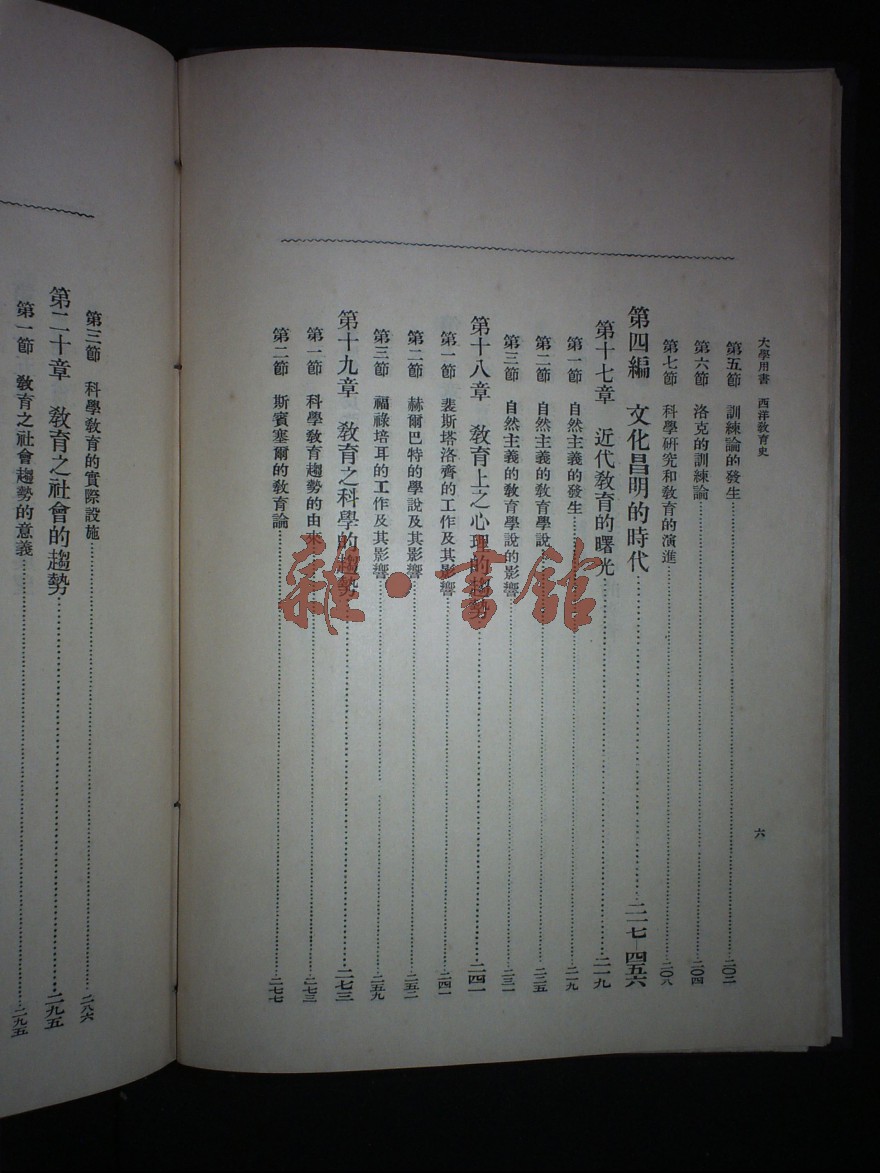 大學用書　西洋教育史
六
第五節　訓練論的發生……二〇二
第六節　洛克的訓練論……二〇四
第七節　科學研究和教育的演進……二〇八
第四編　文化昌明的時代……二一七—四五六
第十七章　近代教育的曙光……二一九
第一節　自然主義的發生……二一九
第二節　自然主義的教育學說……二二五
第三節　自然主義的教育學說的影響……二三一
第十八章　教育上之心理的趨勢……二四一
第一節　裴斯塔洛齊的工作及其影響……二四一
第二節　赫爾巴特的學說及其影響……二五二
第三節　福祿培耳的工作及其影響……二五九
第十九章　教育之科學的趨勢……二七三
第一節　科學教育趨勢的由來……二七三
第二節　斯賓塞爾的教育論……二七七
第三節　科學教育的實際設施……二八六
第二十章　教育之社會的趨勢……二九五
第一節　教育之社會趨勢的意義……二九五
雜·書館